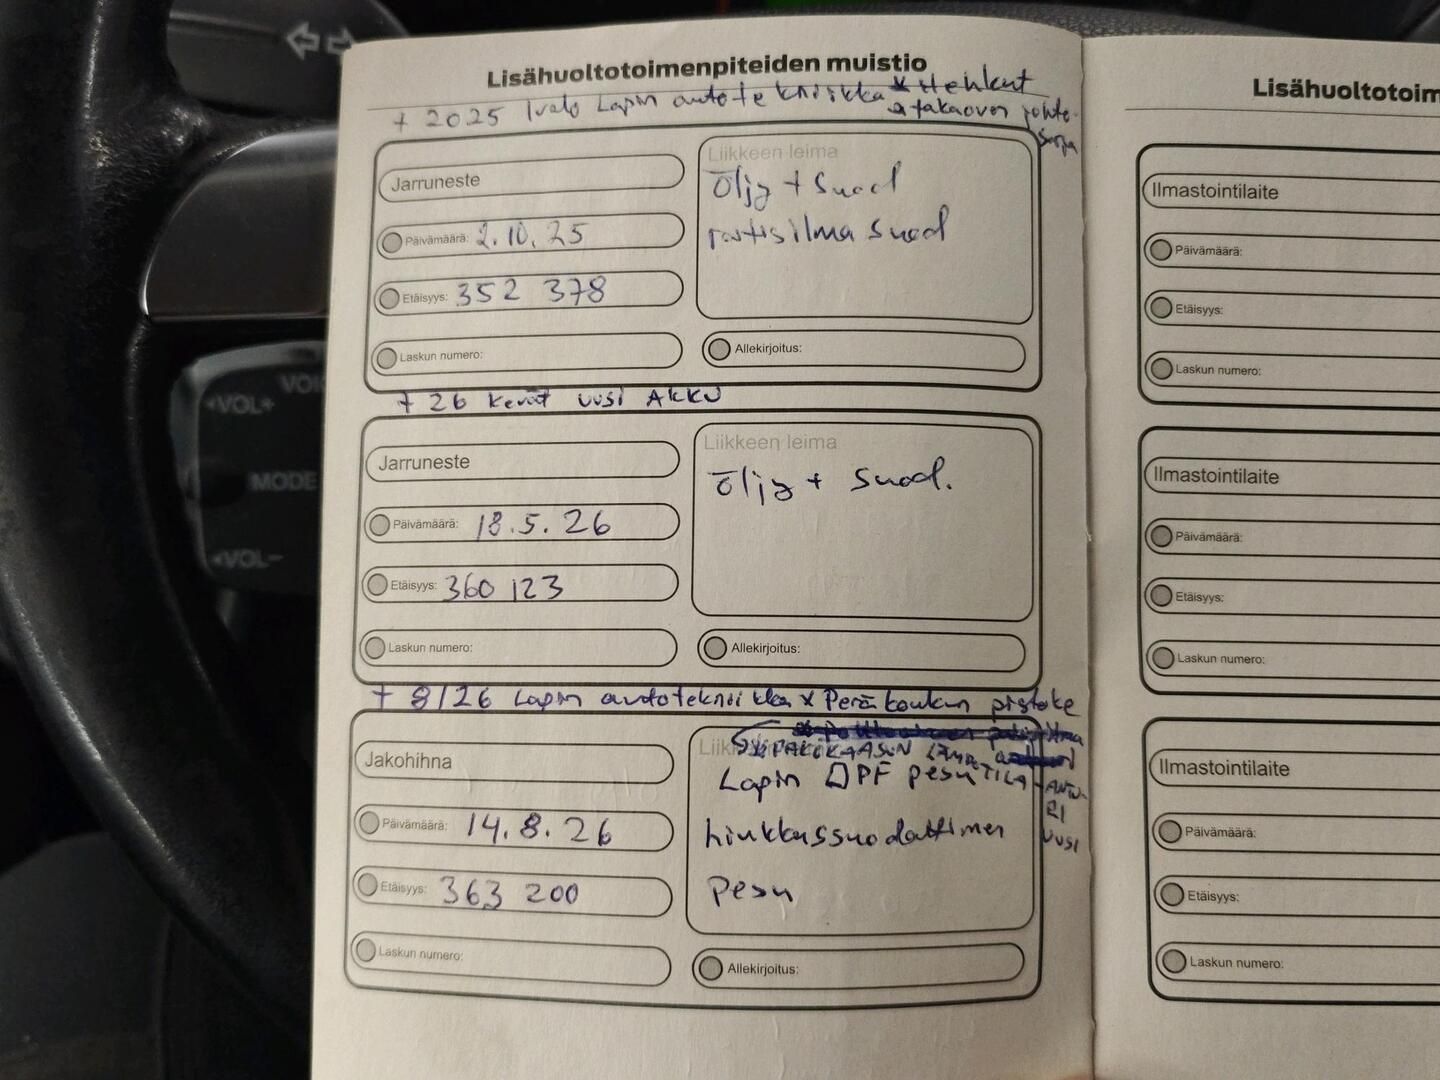 Lisähuoltotoimenpiteiden muistio
+ 2025 Ivalo Lapin autotekniikka * Hehkut
* takaoven johto-
sarja
Jarruneste
Päivämäärä: 2.10.25
Etäisyys: 352 378
Laskun numero:
Liikkeen leima
Öljy + Suod
raitisilma suod
Allekirjoitus:
+ 26 kevät uusi AKKU
Jarruneste
Päivämäärä: 18.5.26
Etäisyys: 360 123
Laskun numero:
Liikkeen leima
Öljy + Suod.
Allekirjoitus:
+ 8/26 Lapin autotekniikka * Peräkoukun pistoke
* PAKOKAASUN LÄMPÖ-
TILA-ANTU-
RI
UUSI
Jakohihna
Päivämäärä: 14.8.26
Etäisyys: 363 200
Laskun numero:
Lapin DPF pesu
hiukkassuodattimen
pesu
Allekirjoitus:
Lisähuoltotoim
Ilmastointilaite
Päivämäärä:
Etäisyys:
Laskun numero:
Ilmastointilaite
Päivämäärä:
Etäisyys:
Laskun numero:
Ilmastointilaite
Päivämäärä:
Etäisyys:
Laskun numero:
VOL+
MODE
VOL−